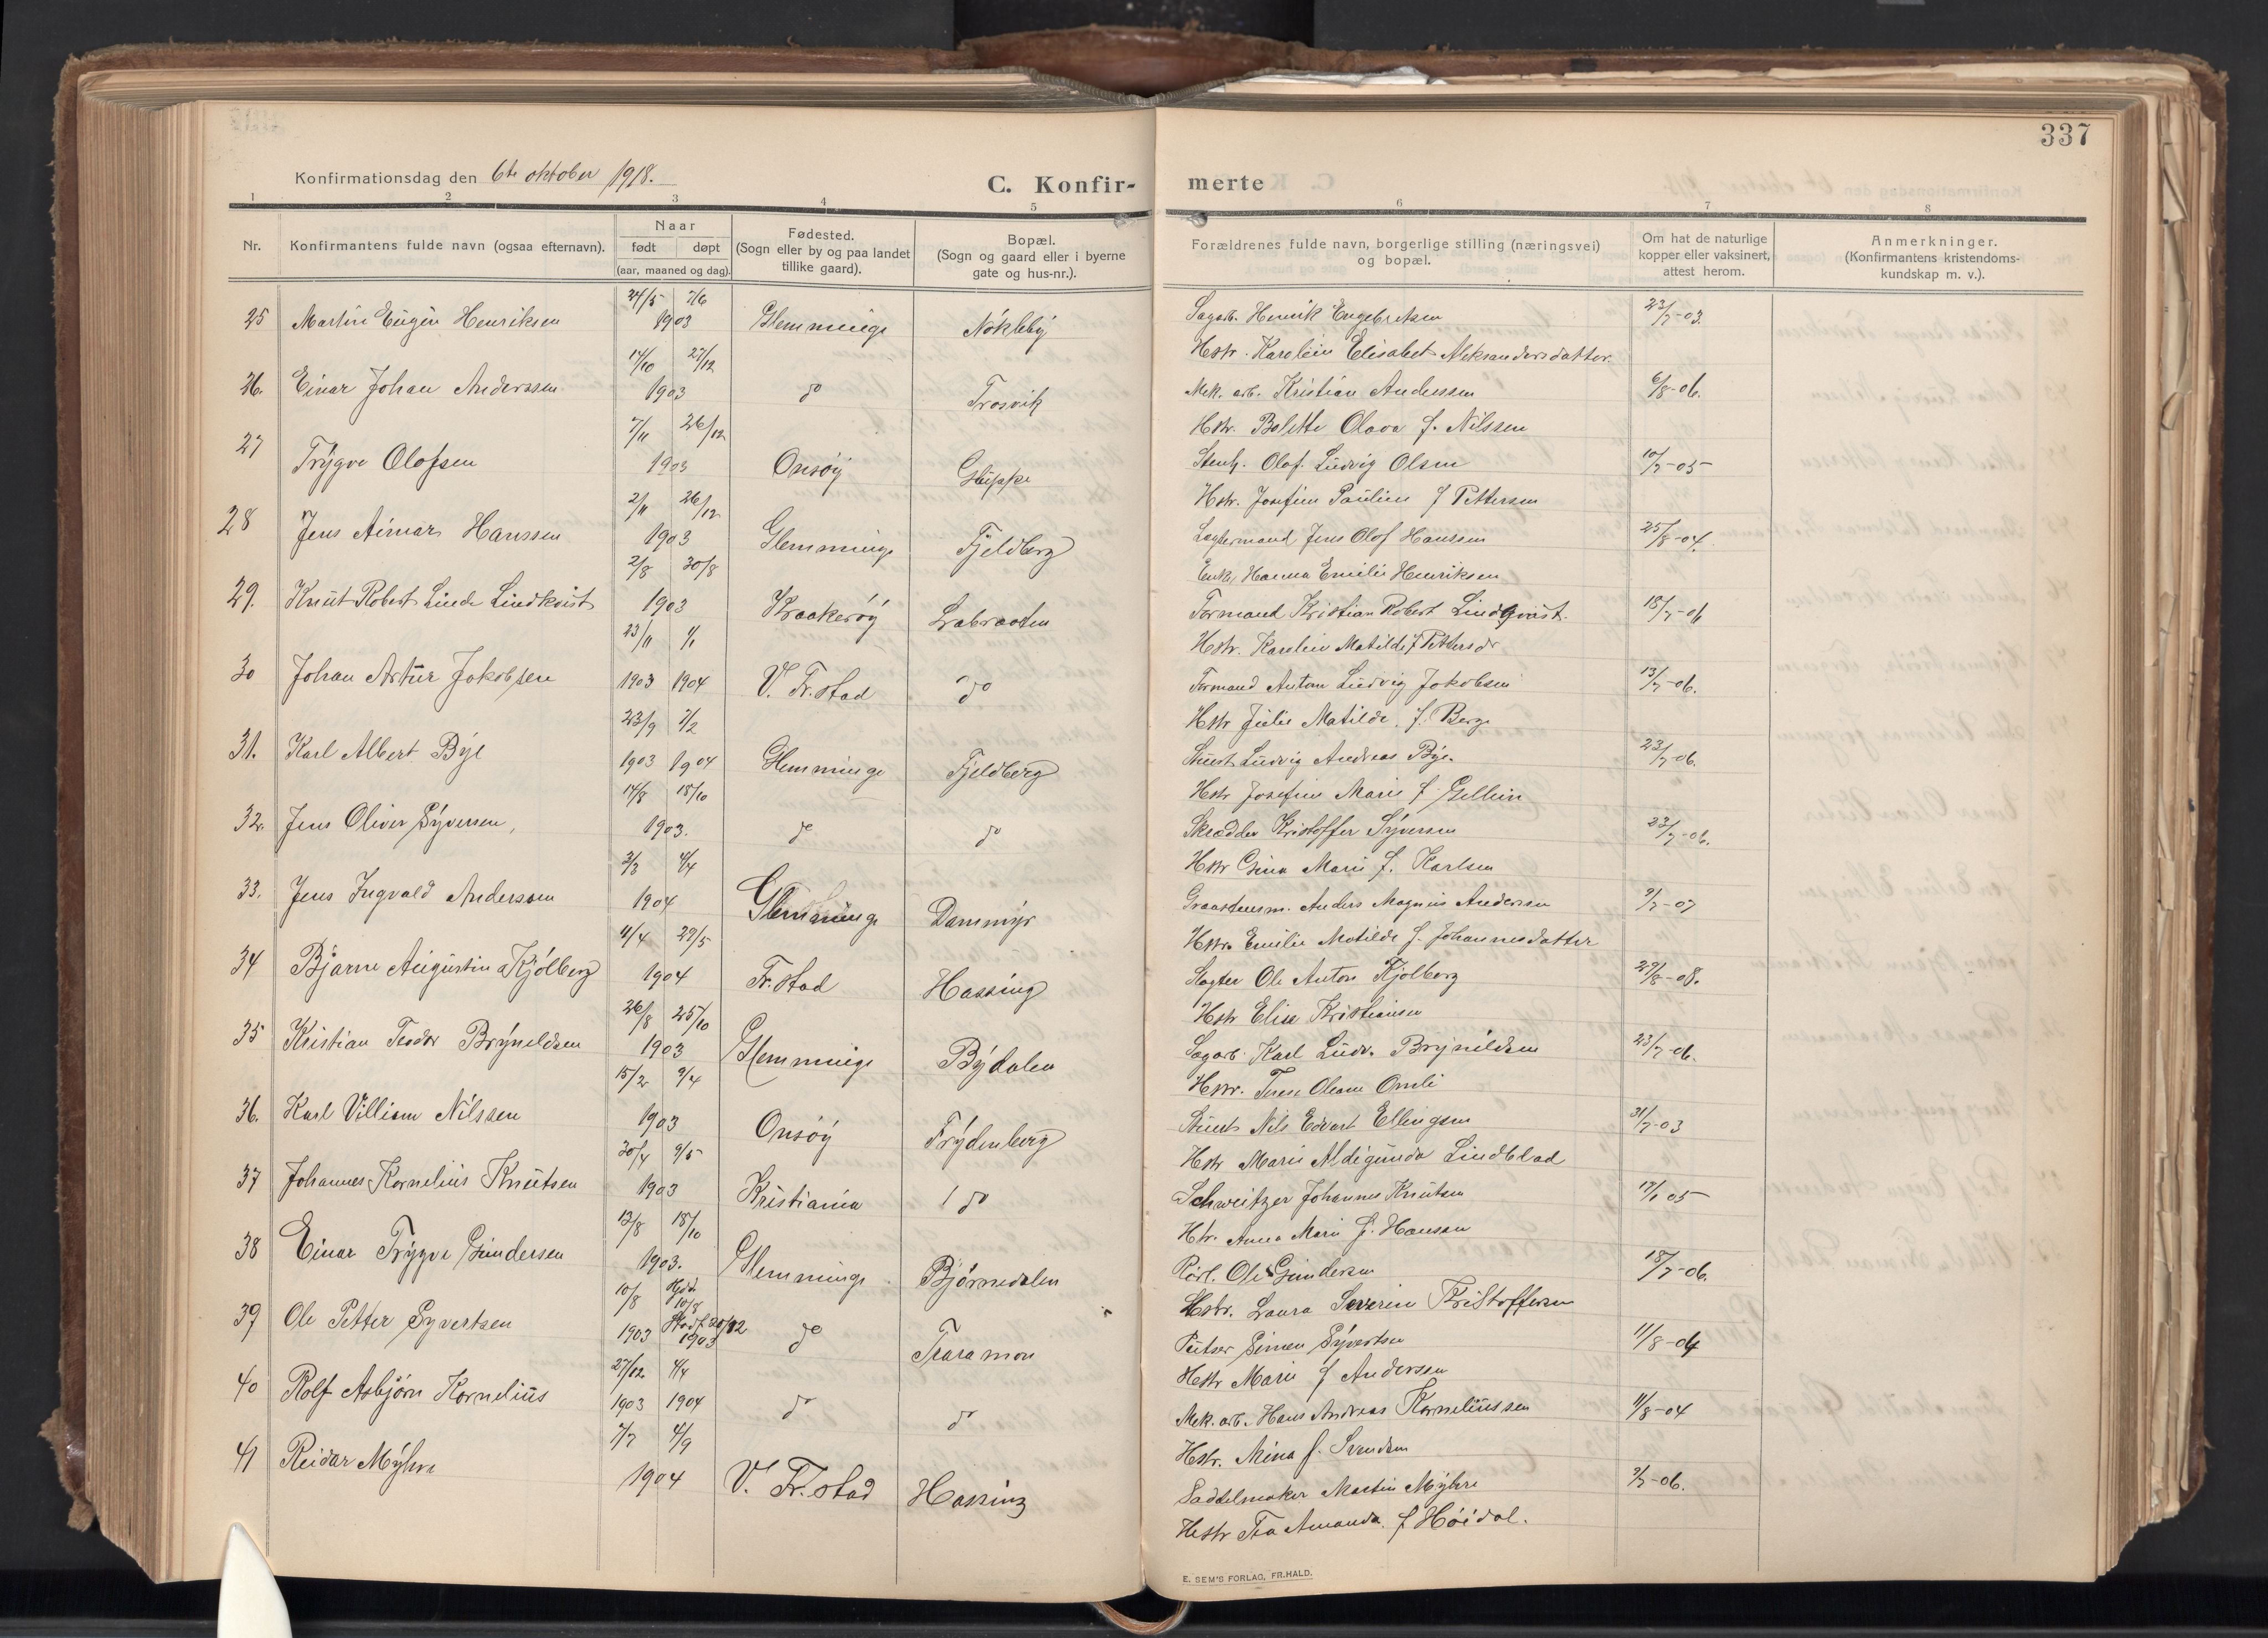 337
Konfirmationsdag den 6te oktober 1918.
C. Konfir-
merte
1 2 3 4 5 6 7 8
Nr.
Konfirmantens fulde navn (ogsaa efternavn).
Naar
født døpt
(aar, maaned og dag).
Fødested.
(Sogn eller by og paa landet
tillike gaard).
Bopæl.
(Sogn og gaard eller i byerne
gate og hus-nr.).
Forældrenes fulde navn, borgerlige stilling (næringsvei)
og bopæl.
Om hat de naturlige
kopper eller vaksinert,
attest herom.
Anmerkninger.
(Konfirmantens kristendoms-
kundskap m. v.).
24/5 7/6
25 Martin Eugen Henriksen 1903 Glemminge Nökleby Sagarb. Henrik Engebretsen 23/7-03.
Hstr. Karoline Elisabet Aleksandersdatter.
14/10 27/12
26. Einar Johan Anderssen 1903 do Trosvik Mek. arb. Kristian Anderssen 6/8-06.
Hstr. Bolette Olava f. Nilssen
7/11 26/12
27 Trygve Olofsen 1903 Onsöy Glippe Stenh. Olof Ludvig Olsen 10/7-05
Hstr. Josefine Pauline f Pettersen
2/11 26/12
28 Jens Aimar Hanssen 1903 Glemminge Fjeldberg Jens Olof Hanssen 25/8-04.
Enk. Hanna Emilie Henriksen
2/8 30/8
29. Knut Robert Linde Lindkvist 1903 Kraakeröy Labraaten Formand Kristian Robert Lindqvist. 18/7-06
Hstr. Karolin Matilde f Pettersdr
23/11 1/1
30 Johan Artur Jakobsen 1903 1904 V. Fr.stad do Formand Anton Ludvig Jakobsen 13/7-06.
Hstr Julie Matilde. f. Berg
23/9 7/2
31. Karl Albert Bye 1903 1904 Glemminge Fjeldberg Ludvig Andreas Bye. 23/7-06.
Hstr Josefine Marie f Gellein
14/8 18/10
32. Jens Oliver Syversen, 1903. do do Skrædder Kristoffer Syversen 23/7-06.
Hstr Gina Marie f. Karlsen
3/3 4/4
33. Jens Ingvald Anderssen 1904 Glemminge Dammyr Graastensm. Anders Magnus Andersen 9/7-07
Hstr. Emilie Matilde f. Johannesdatter
11/4 29/5
34 Bjarne Augustin Kjölberg 1904 Fr.stad Hassing Slagter Ole Anton Kjölberg 29/8-08.
Hstr Elise Kristiansen
26/8 25/10
35 Kristian Teodor Bryneldsen 1903 Glemminge Bydalen Sagarb. Karl Ludv. Brynildsen 23/7-06.
Hstr. Terese Oleane Omli
15/2 9/4
36. Karl Villiam Nilssen 1903 Onsöy Frydenberg Nils Edvart Ellingsen 31/7-03
Hstr Marie Aldegunda Lindblad
30/4 9/5
37 Johannes Kornelius Knutsen 1903 Kristiania do Schweitzer Johannes Knutsen 17/1 05
Htr. Anna Marie f. Hansen
13/8 18/10
38 Einar Trygve Gundersen 1903. Glemminge Björnedalen Ole Gundersen 18/7-06.
Hstr. Laura Severin Kristoffersen
10/8 Hjd. 10/8
39 Ole Petter Syvertsen 1903 Stadf 20/12 1903 do Traramon Pudser Simen Syvertsen 11/8-04
Hstr Marie f Anderssen
27/12 4/4
40 Rolf Asbjörn Kornelius 1903 1904 do do Mek. arb. Hans Andreas Korneliussen 11/8-04
Hstr. Mina f. Svendsen
7/7 4/9
41 Reidar Myhre 1904 V. Fr.stad Hassing Saddelmaker Martin Myhre 3/7-06.
Hstr Tea Amanda. f Höidal.
E. SEM'S FORLAG, FR.HALD.